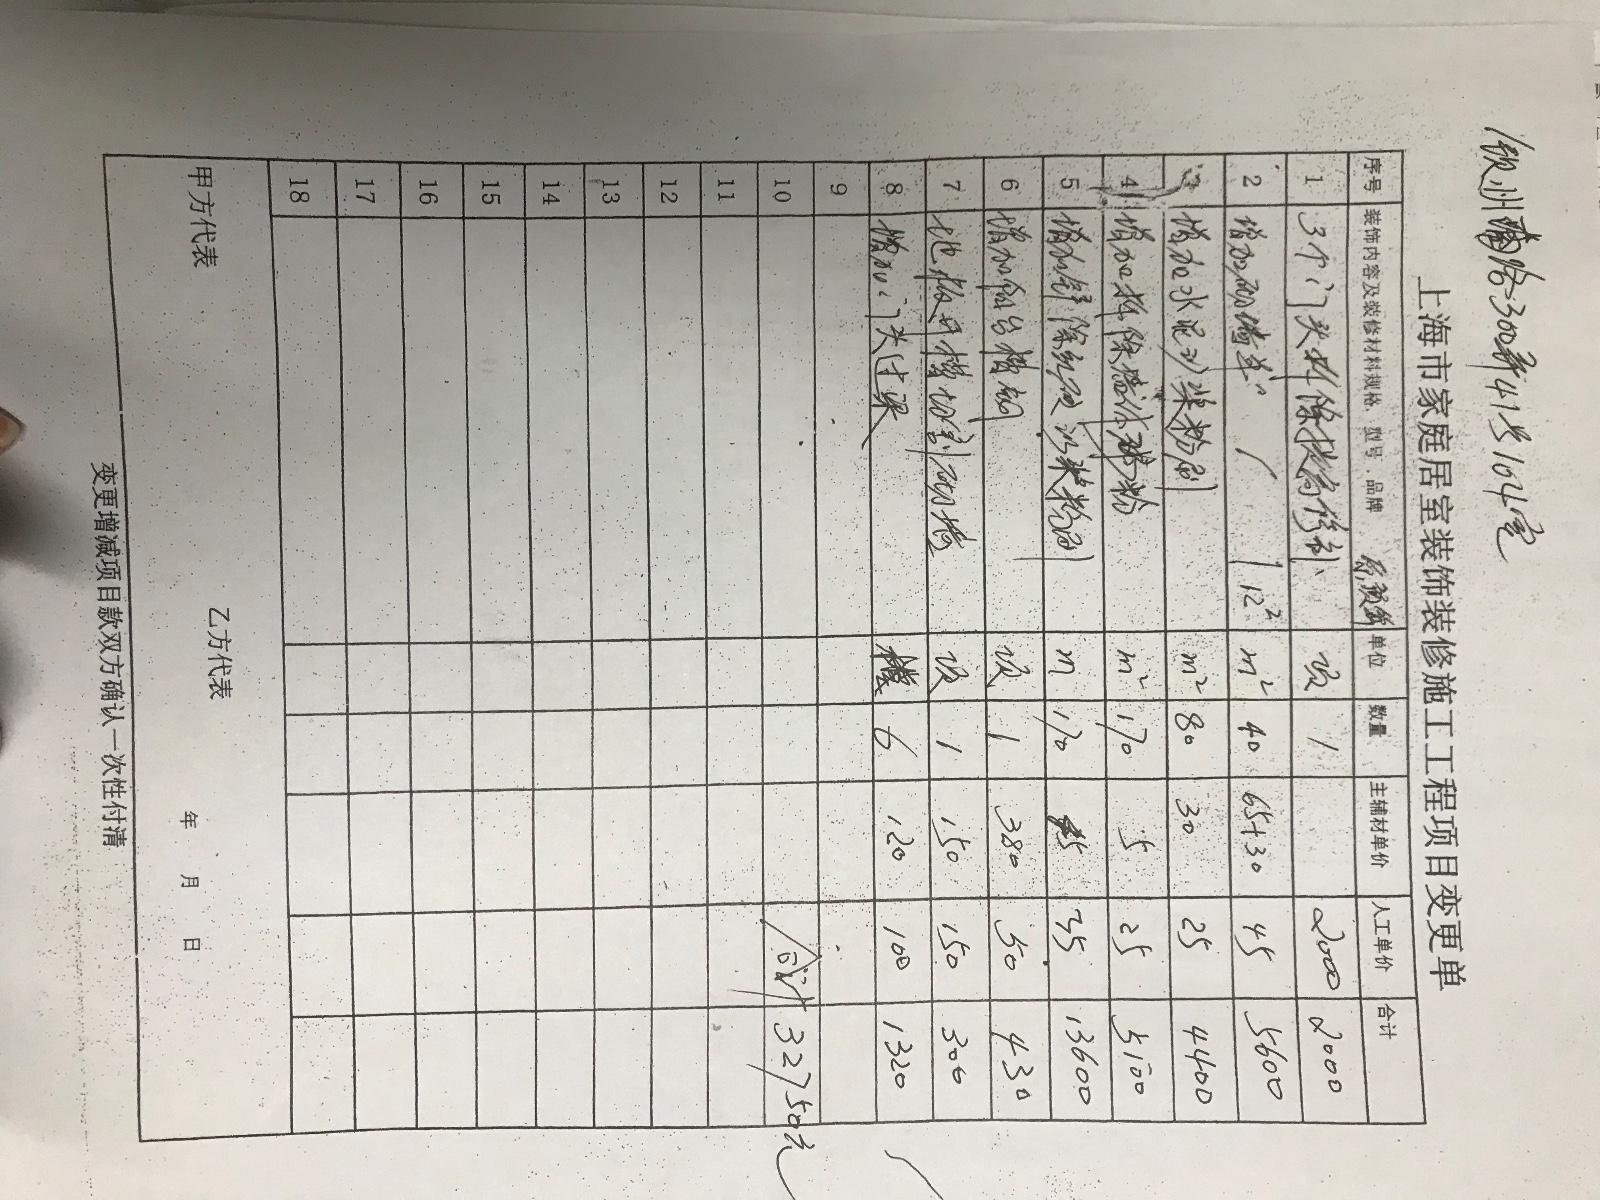 钦州南路300弄41号104室
上海市家庭居室装饰装修施工工程项目变更单
序号 装饰内容及装修材料规格、型号、品牌 单位 数量 主辅材单价 人工单价 合计
1 3个门头拆除提高修补 项 1 2000 2000
2 增加砌墙 12² m² 40 65+30 45 5600
3 增加水泥沙浆粉刷 m² 80 30 25 4400
4 增加拆除墙 粉 m² 170 5 25 5100
5 增加 除 沙浆粉刷 m 170 45 35 13600
6 增加阳台槽钢 项 1 380 50 430
7 地板开槽切割 项 1 150 150 300
8 增加门头过梁 6 120 100 1320
9
10 合计 32750元
11
12
13
14
15
16
17
18
甲方代表 乙方代表 年 月 日
变更增减项目款双方确认一次性付清